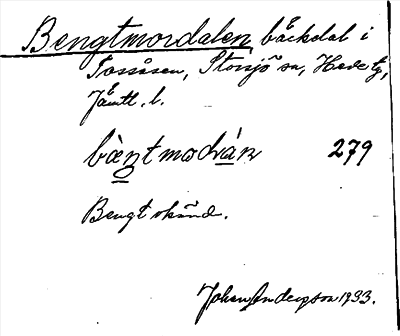 Bengtmordalen, båckdal i
Tossåsen, Storsjö sn, Hede tg,
Jämtl. l.
bæŋtmoɖán 279
Bengt okänd.
Johan Anderson 1933.